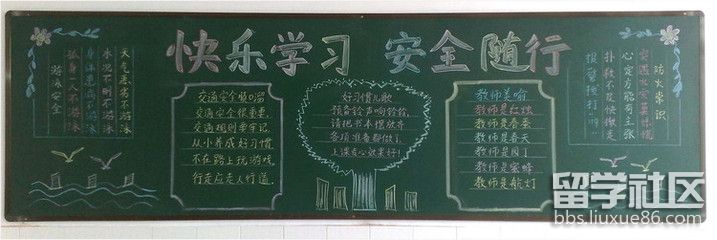 快乐学习 安全随行
天气恶劣不游泳
身体患病不游泳
水况不明不游泳
孤身一人不游泳
游泳安全
交通安全顺口溜
交通安全很重要,
交通规则要牢记,
从小养成好习惯
不在路上玩游戏,
行走应走人行道,
好习惯儿歌
预备铃声响铃铃,
请把书本摆放齐
各项准备都做了,
上课专心效果好!
教师美喻
教师是红烛
教师是春蚕
教师是春天
教师是园丁
教师是蜜蜂
教师是航灯
防火常识
突遇火灾莫慌慌
心定方能有主张
扑救不及快撤走
报警拨打119
留学社区
bbs.liuxue86.com